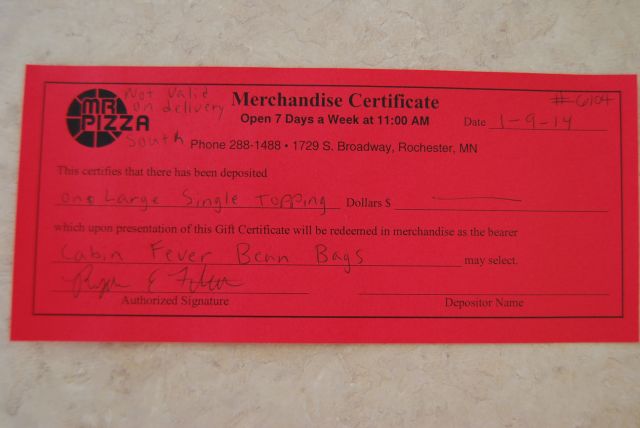 Not valid
on delivery
MR PIZZA
South
Merchandise Certificate
# 6104
Open 7 Days a Week at 11:00 AM
Date 1-9-14
Phone 288-1488 • 1729 S. Broadway, Rochester, MN
This certifies that there has been deposited
One Large Single Topping Dollars $
which upon presentation of this Gift Certificate will be redeemed in merchandise as the bearer
Cabin Fever Bean Bags may select.
Authorized Signature
Depositor Name